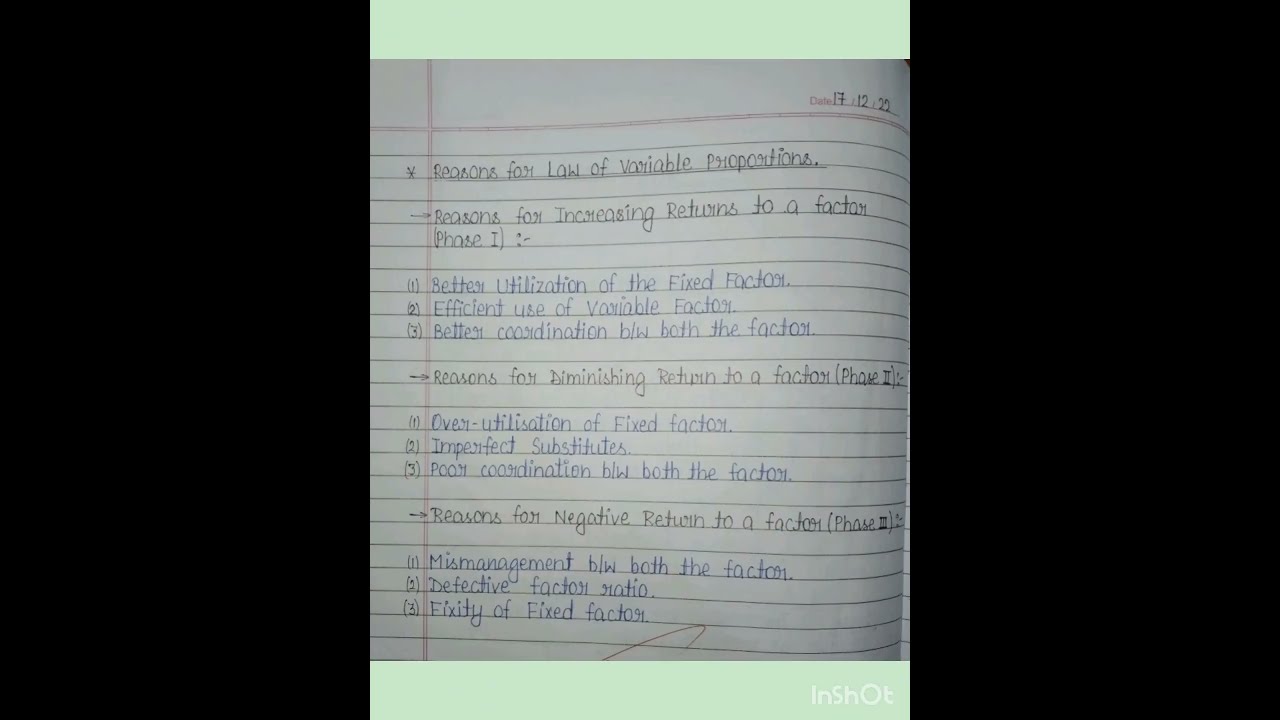 Date 17.12.22
* Reasons for Law of Variable Proportions.
→ Reasons for Increasing Returns to a factor
(Phase I) :-
(1) Better Utilization of the Fixed Factor.
(2) Efficient use of Variable Factor.
(3) Better coordination b/w both the factor.
→ Reasons for Diminishing Return to a factor (Phase II):-
(1) Over-utilisation of Fixed factor.
(2) Imperfect Substitutes.
(3) Poor coordination b/w both the factor.
→ Reasons for Negative Return to a factor (Phase III):-
(1) Mismanagement b/w both the factor.
(2) Defective factor ratio.
(3) Fixity of Fixed factor.
InShOt